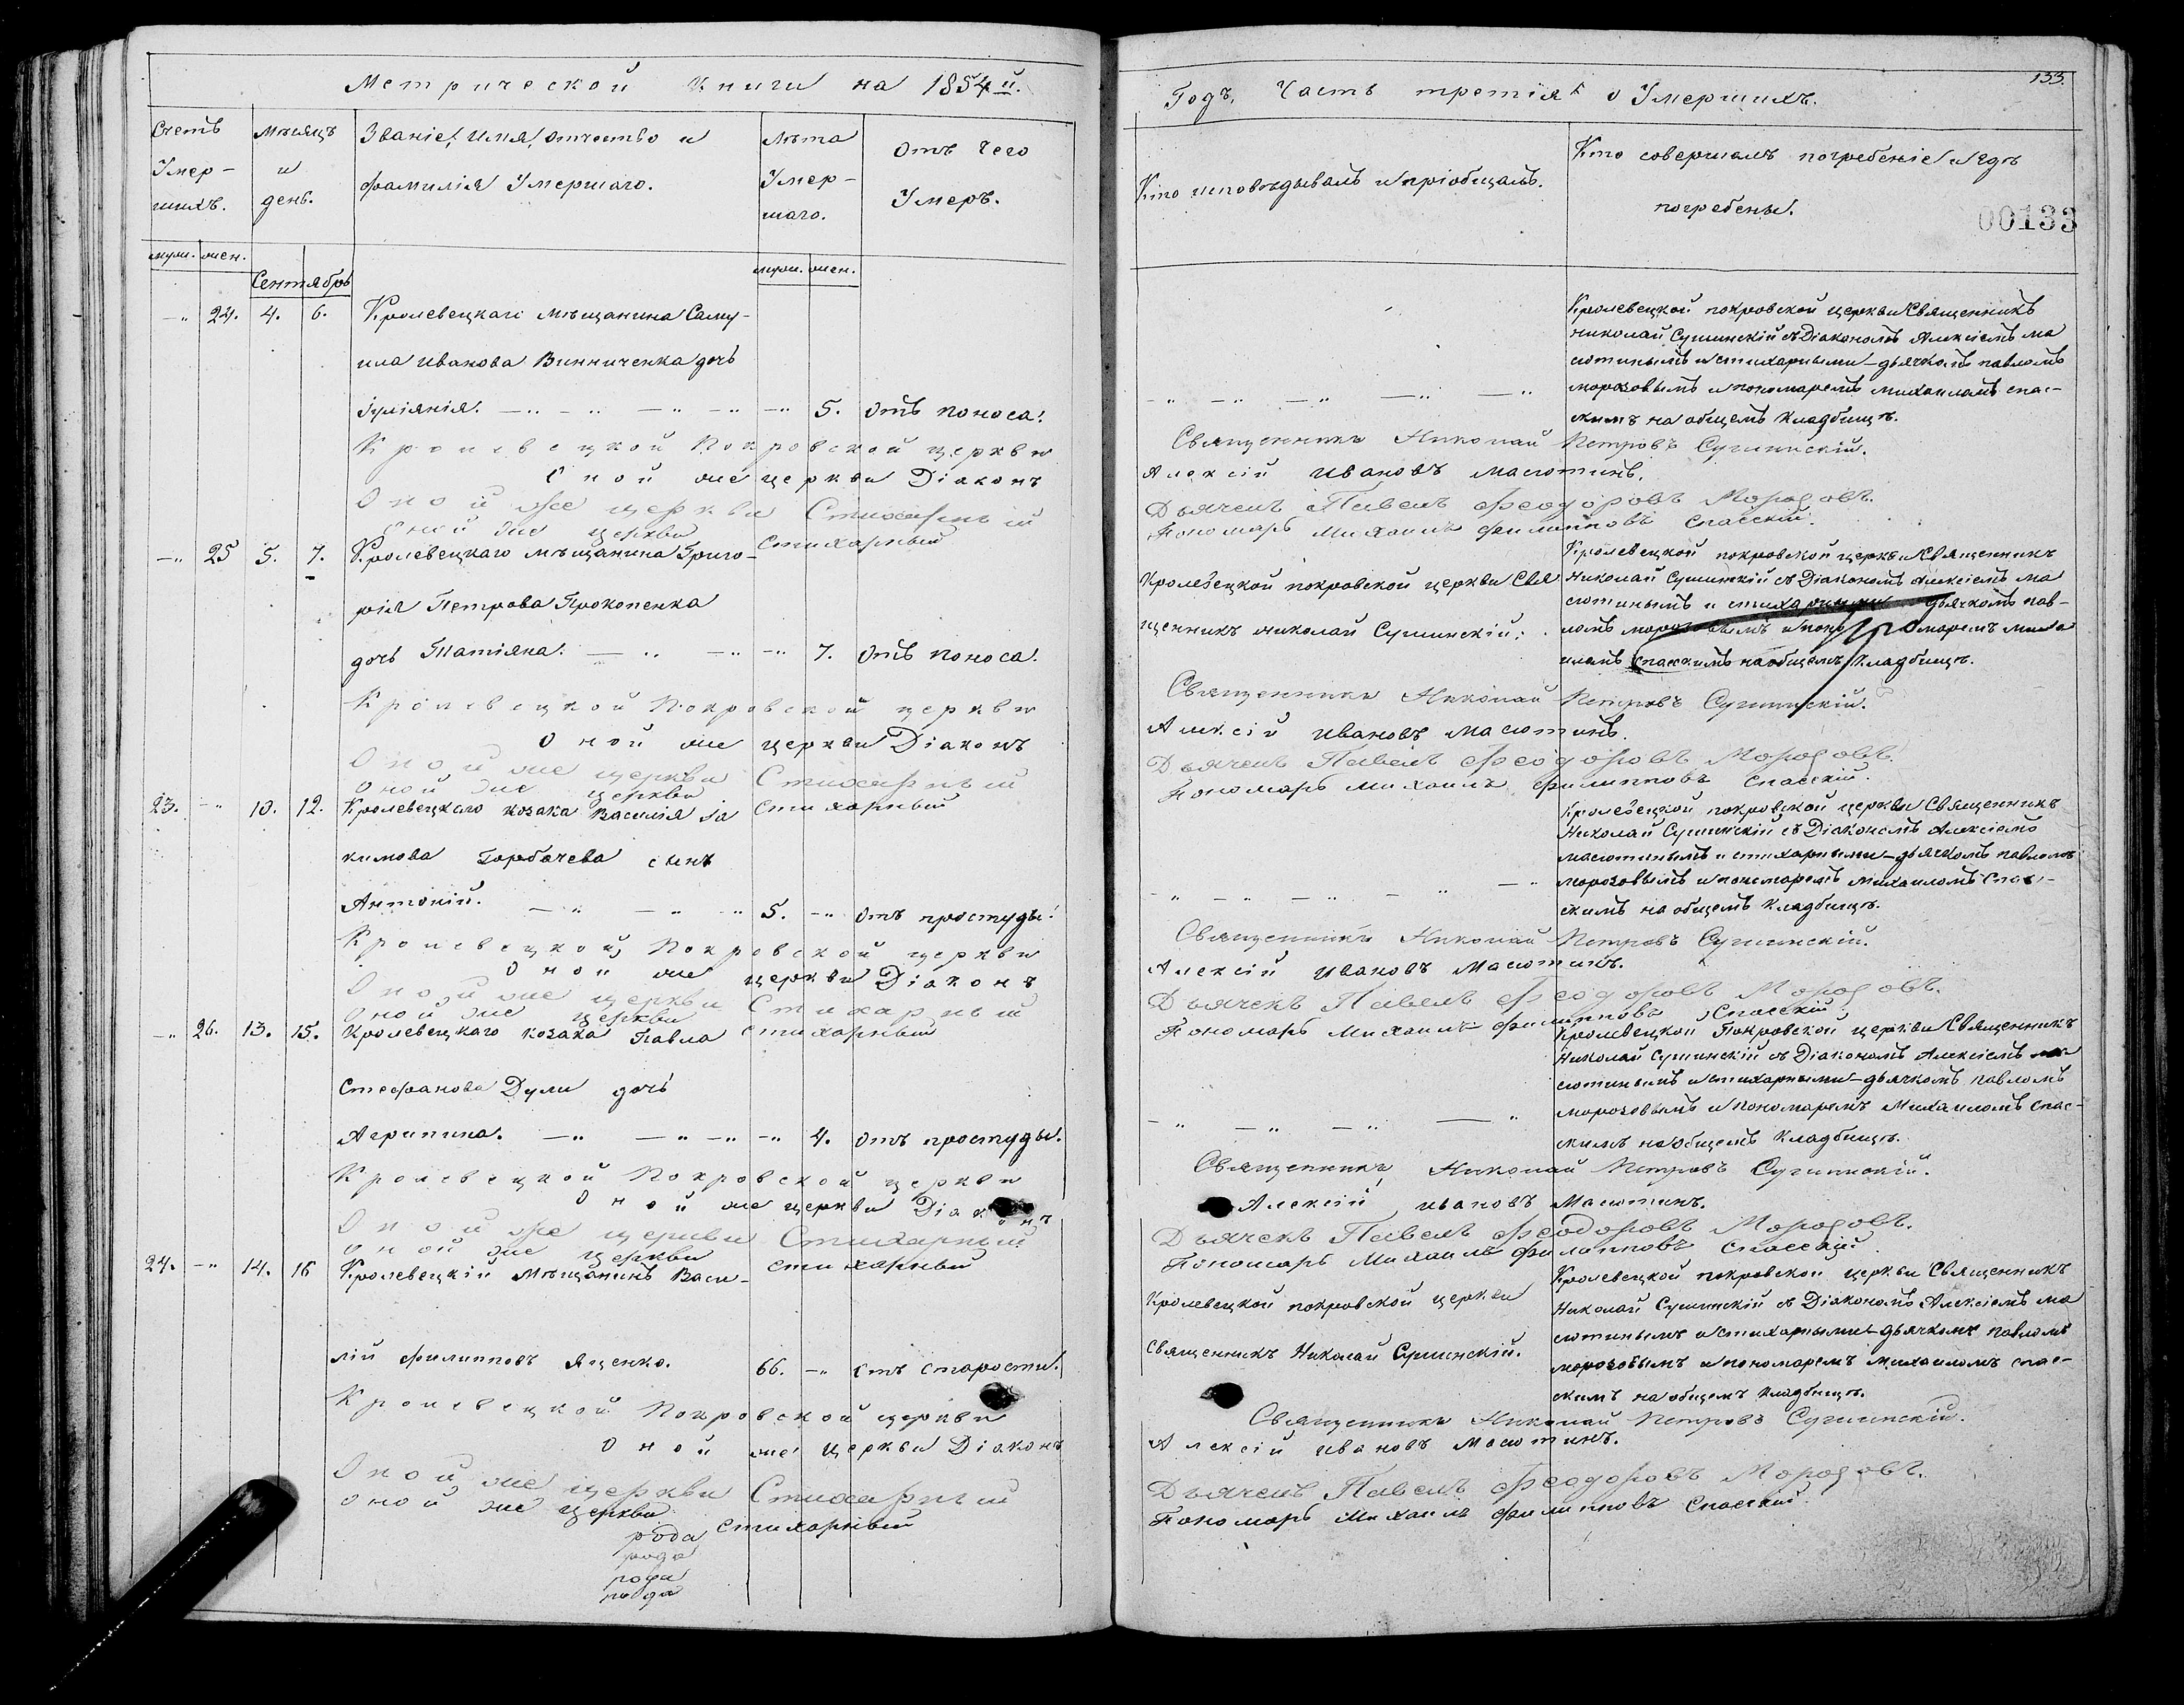 Метрической Книги на 1854й.
Счетъ Умер-шихъ.
Мѣсяцъ и день.
Званіе, Имя, Отчество и фамилія Умершаго.
Лѣта Умер-шаго.
Отъ чего Умеръ.
муж. жен.
Сентябрь
муж. жен.
-" 24. 4. 6. Кролевецкаго мѣщанина Саму-
ила Иванова Винниченка дочь
Іуліянія. -" 5. Отъ поноса.
Кролевецкой Покровской церкви
Оной же церкви Діаконъ
Оной же церкви Стихарный
Оной же церкви стихарный
-" 25 5. 7. Кролевецкаго мѣщанина Григо-
рія Петрова Прокопенка
дочь Татіяна. -" 7. Отъ поноса.
Кролевецкой Покровской церкви
Оной же церкви Діаконъ
Оной же церкви Стихарный
Оной же церкви стихарный
23. -" 10. 12. Кролевецкаго козака Василія Іа
кимова Горбачева сынъ
Антоній. 5. -" Отъ простуды.
Кролевецкой Покровской церкви
Оной же церкви Діаконъ
Оной же церкви Стихарный
Оной же церкви стихарный
-" 26. 13. 15. Кролевецкаго козака Павла
Стефанова Дули дочь
Агрипина. -" 4. Отъ простуды.
Кролевецкой Покровской церкви
Оной же церкви Діаконъ
Оной же церкви Стихарный
Оной же церкви стихарный
24. -" 14. 16 Кролевецкій Мѣщанинъ Васи-
лій Филипповъ Яценко. 66. -" отъ старости.
Кролевецкой Покровской церкви
Оной же церкви Діаконъ
Оной же церкви Стихарный
Оной же церкви стихарный
рода
рода
рода
рода
133.
Годъ, Часть третія о Умершихъ.
Кто исповѣдывалъ и пріобщалъ.
Кто совершалъ погребеніе и гдѣ
погребены.
00133
Кролевецкой покровской церкви Священникъ
Николай Сушинскій съ Діакономъ Алексіемъ ма
сютинымъ и стихарными-дьячкомъ павломъ
морозовымъ и пономаремъ михаиломъ спас-
скимъ на общемъ кладбищѣ.
Священникъ Николай Петровъ Сушинскій.
Алексій Ивановъ Масютинъ.
Дьячекъ Павелъ Феодоровъ Морозовъ.
Пономарь Михаилъ Филипповъ Спасскій.
Кролевецкой покровской церкви Священникъ
Кролевецкой покровской церкви Свя
Николай Сушинскій съ Діакономъ Алексіемъ ма
сютинымъ и стихарными дьячкомъ пав-
щенникъ Николай Сушинскій.
ломъ морозовымъ и пономаремъ миха
иломъ спасскимъ на общемъ кладбищѣ.
Священникъ Николай Петровъ Сушинскій.
Алексій Ивановъ Масютинъ.
Дьячекъ Павелъ Феодоровъ Морозовъ.
Пономарь Михаилъ Филипповъ Спасскій.
Кролевецкой покровской церкви Священникъ
Николай Сушинскій съ Діакономъ Алексіемъ
масютинымъ и стихарными-дьячкомъ павломъ
морозовымъ и пономаремъ Михаиломъ Спас-
скимъ на общемъ кладбищѣ.
Священникъ Николай Петровъ Сушинскій.
Алексій Ивановъ Масютинъ.
Дьячекъ Павелъ Феодоровъ Морозовъ.
Пономарь Михаилъ Филипповъ Спасскій
Кролевецкой Покровской церкви Священникъ
Николай Сушинскій съ Діакономъ Алексіемъ ма
сютинымъ и стихарными-дьячкомъ павломъ
морозовымъ и пономаремъ Михаиломъ спас-
скимъ на общемъ кладбищѣ.
Священникъ Николай Петровъ Сушинскій.
Алексій Ивановъ Масютинъ.
Дьячекъ Павелъ Феодоровъ Морозовъ.
Пономарь Михаилъ Филипповъ Спасскій.
Кролевецкой покровской церкви Священникъ
Кролевецкой покровской церкви
Николай Сушинскій съ Діакономъ Алексіемъ ма
сютинымъ и стихарными-дьячкомъ павломъ
Священникъ Николай Сушинскій.
морозовымъ и пономаремъ михаиломъ спас-
скимъ на общемъ кладбищѣ.
Священникъ Николай Петровъ Сушинскій.
Алексій Ивановъ Масютинъ.
Дьячекъ Павелъ Феодоровъ Морозовъ.
Пономарь Михаилъ Филипповъ Спасскій.